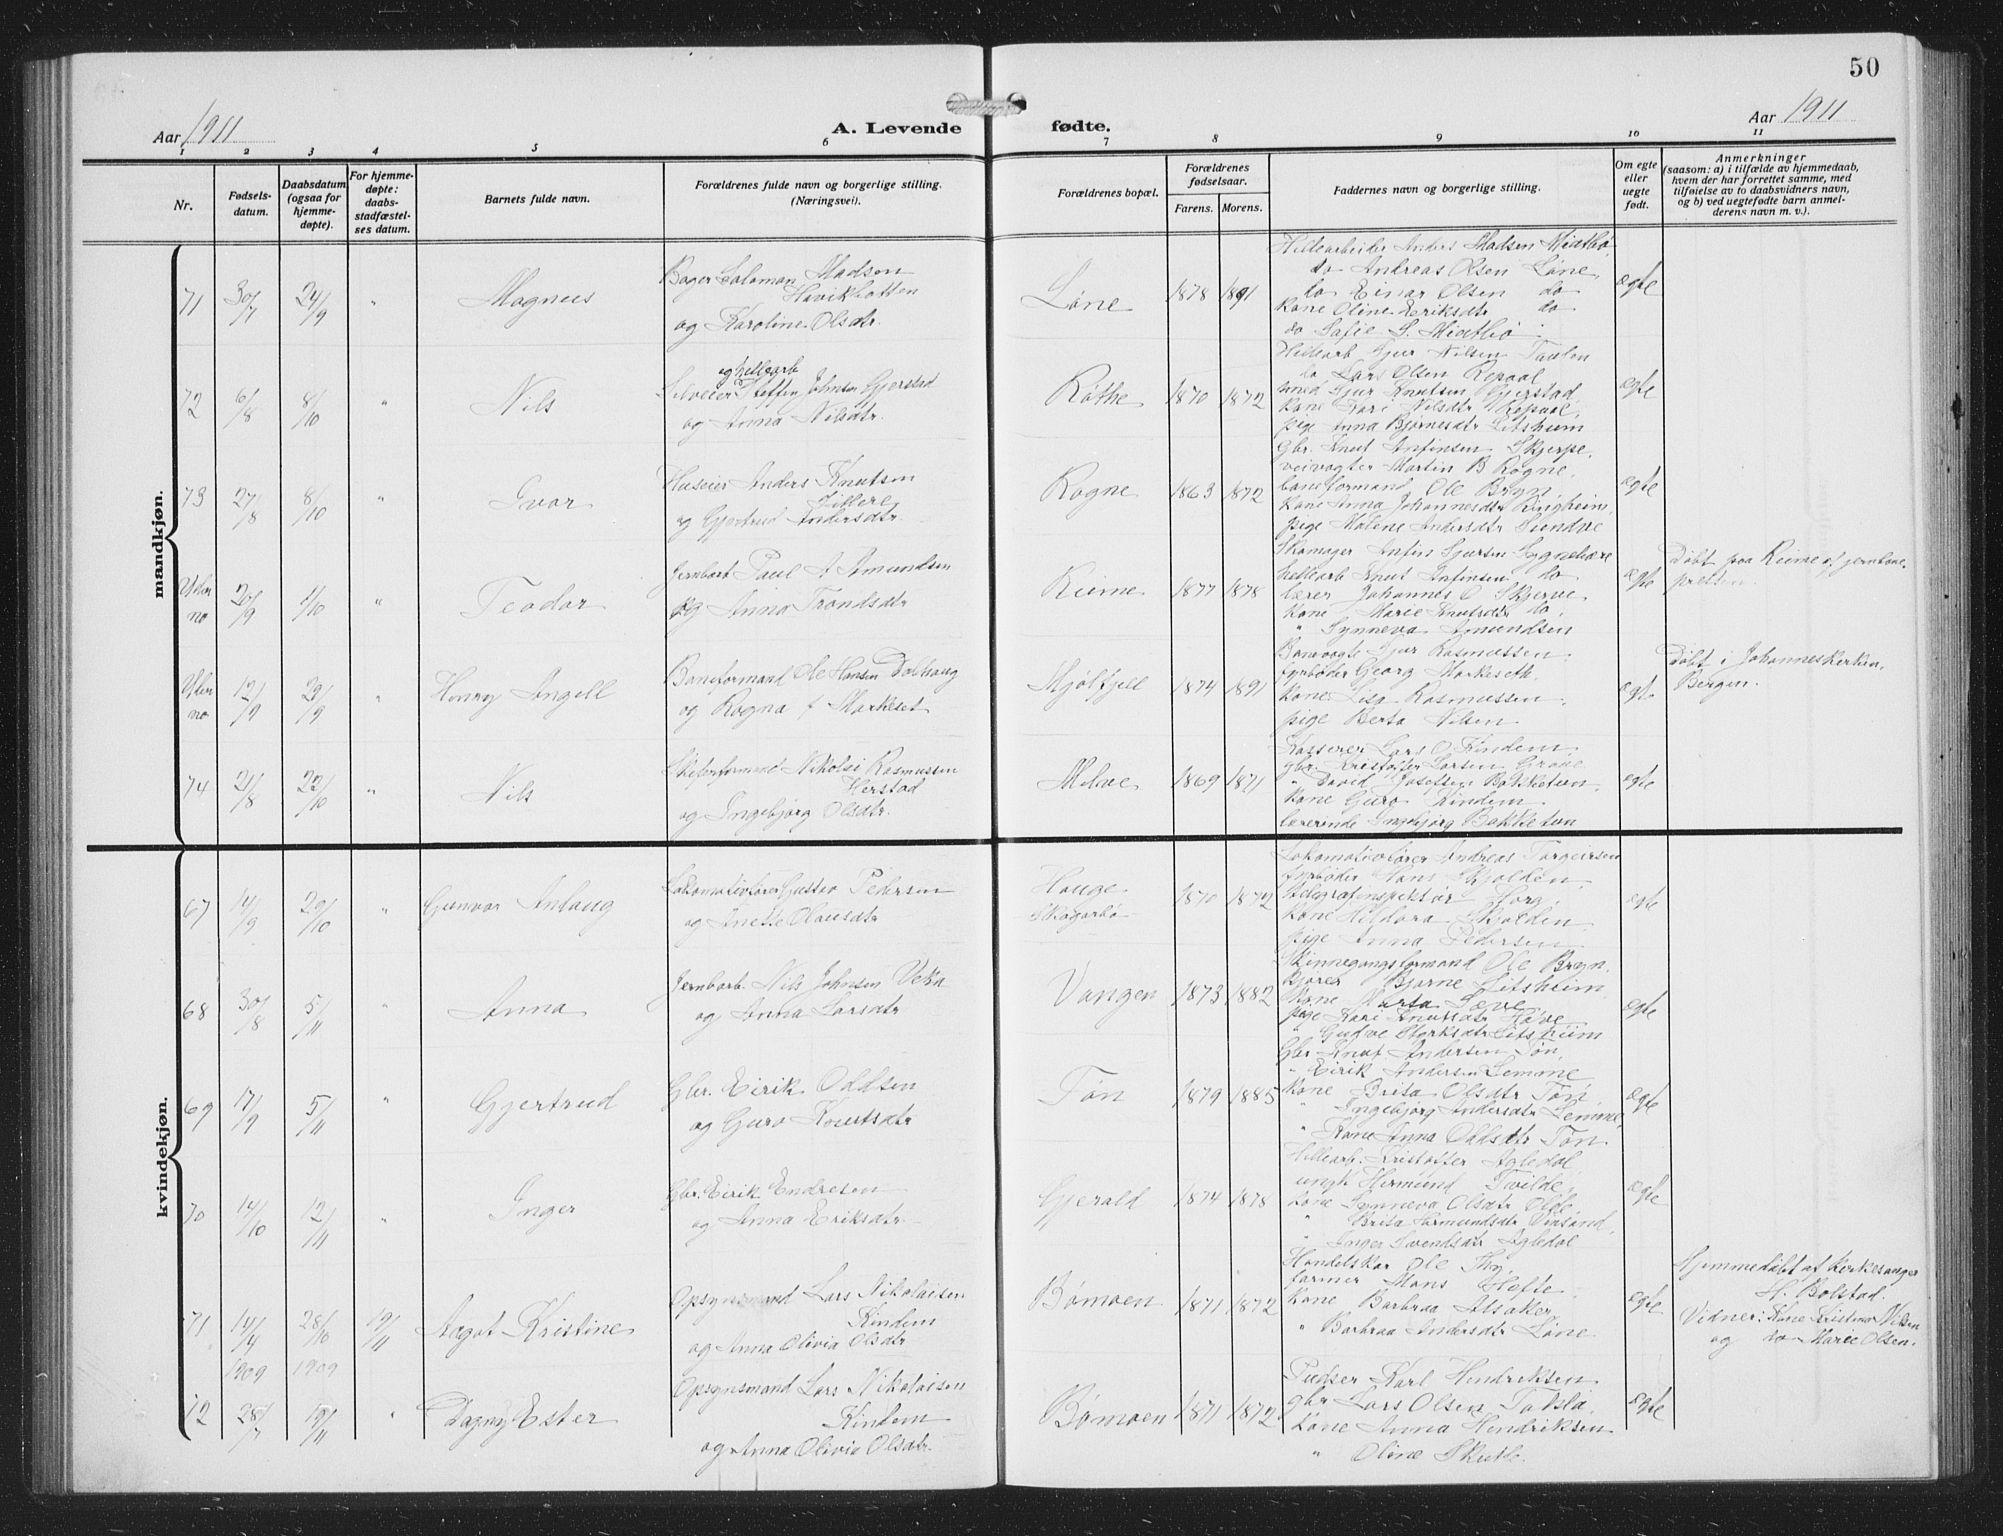 50
Aar 1911
A. Levende fødte.
Aar 1911
1 2 3 4 5 6 7 8 9 10 11
Nr.
Fødsels-
datum.
Daabsdatum
(ogsaa for
hjemme-
døpte).
For hjemme-
døpte:
daabs-
stadfæstel-
ses datum.
Barnets fulde navn.
Forældrenes fulde navn og borgerlige stilling.
(Næringsvei).
Forældrenes bopæl.
Forældrenes
fødselsaar.
Farens. Morens.
Faddernes navn og borgerlige stilling.
Om egte
eller
uegte
født.
Anmerkninger
(saasom: a) i tilfælde av hjemmedaab,
hvem der har forrettet samme, med
tilføielse av to daabsvidners navn,
og b) ved uegtefødte barn anmel-
derens navn m. v.).
mandkjøn.
71 30/7 24/9 " Magnus
Bager Salomon Madsen
Havikbotten
og Karoline Olsdtr.
Løne 1878 1891
Hellearbeider Anders Madsen Midtbø
do Andreas Olsen Løne,
do Einar Olsen do
Kone Oline Eriksdtr do
do Sofie S. Midtbø
ægte
72 6/8 8/10 " Nils
og hellearb
Selveier Steffen Johnsen Gjerstad
og Anna Nilsdtr.
Røthe 1870 1872
Hellearb Sjur Nilsen Taulen
do Lars Olsen Repaal
smed Sjur Knutsen Gjerstad
Kone Kari Nilsdtr Repaal,
pige Anna Bjørnesdtr Litsheim
ægte
73 27/8 8/10 " Ivar
Huseier Anders Knutsen
og Gjertrud Andersdtr.
Rogne 1863 1872
Gbr. Knut Anfinsen Skjerpe,
veivogter Martin B Rogne,
baneformand Ole Bryn,
Kone Anna Johannesdtr Ringheim,
pige Malene Andersdtr Sundve
ægte
Uden
no 20/9 1/10 " Teodor
Jernbarb Paul A Amundsen
og Anna Trondsdtr
Rieme 1877 1878
Skomager Anfin Sjursen Sygnebære
hellearb Knut Anfinsen do
lærer Johannes O Skjerve
Kone Marie Knutsdtr do,
" Synneva Amundsen
ægte
Døbt paa Rieme af jernbane-
presten.
Uden
no 12/9 29/9 " Henry Angell
Baneformand Ole Hansen Dalhaug
og Ragna f Markeset
Mjølfjell 1874 1891
Banevogter Sjur Rasmussen
fyrbøder Georg Markeseth
Kone Lisa Rasmussen,
pige Berta Nilsen
ægte
Døbt i Johanneskirken,
Bergen.
74 21/8 22/10 " Nils
Skiferformand Nikolai Rasmussen
Herstad
og Ingebjørg Olsdtr.
Melve 1869 1871
Kasserer Lars O Kindem,
gbr. Kristoffer Larsen Grove
" David Josefsen Bakketun,
Kone Guro Kindem
lærerinde Ingebjørg Bakketun
ægte
kvindekjøn.
67 14/9 29/10 " Gunvor Anlaug
Lokomotivfører Gustav Pedersen
og Anette Olausdtr
Hauge
Skogarbø 1870 1872
Lokomotivfører Andreas Torgeirsen
fyrbøder Hans Skjolden,
telegrafinspektør Sorg,
Kone Hildora Skjolden
pige Anna Pedersen
ægte
68 30/8 5/11 " Anna
Jernbarb. Nils Johnsen Veka
og Anna Larsdtr
Vangen 1873 1882
Skinnegangsformand Ole Bryn,
Kjører Bjørne Litsheim,
Kone Marta Seve
pige Kari Knutsdtr Høve
" Gudve Størksdtr Litsheim
ægte
69 17/9 5/11 " Gjertrud
Gbr. Eirik Oddsen
og Guro Knutsdtr
Tøn 1879 1885
Gbr Knut Andersen Tøn,
" Eirik Andersen Lemme
Kone Brita Olsdtr Tøn,
" Ingebjørg Andersdtr Lemme,
" Kone Anna Oddsdtr Tøn
ægte
70 14/10 12/11 " Inger
Gbr. Eirik Endresen
og Anna Eriksdtr
Gjerald 1874 1878
Hellearb. Kristoffer Agledal
ungk Hermund Tvilde,
Kone Synneva Olsdtr Olde,
" Brita Hermundsdtr
" Inger Svendsdtr Agledal
ægte
71 14/4 28/10 19/11 Aagot Kristine
1909 1909
Opsynsmand Lars Nikolaisen
Kindem
og Anna Olivia Olsdtr
Bømoen 1871 1872
Handelskar Ole Thy,
farmer Mons Hefte,
Kone Barbraa Alsaker
" Barbraa Andersdtr Løne
ægte
Hjemmedøbt af kirkesanger
H. Bolstad.
Vidner: Kone Kristina Nilsen
og do Marie Olsen.
72 28/7 19/11 " Dagny Ester
Opsynsmand Lars Nikolaisen
Kindem
og Anna Olivia Olsdtr.
Bømoen 1871 1872
Pudser Karl Hendriksen
gbr Lars Olsen Taksla,
Kone Anna Hendriksen
" Oline Skutle.
ægte